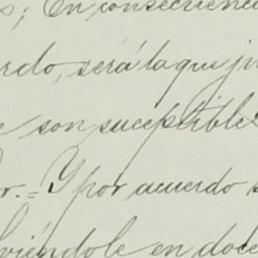 s; En consecuencia
rdo, será la que ju
son suceptible
r.= Y por acuerdo s
viéndole en doce